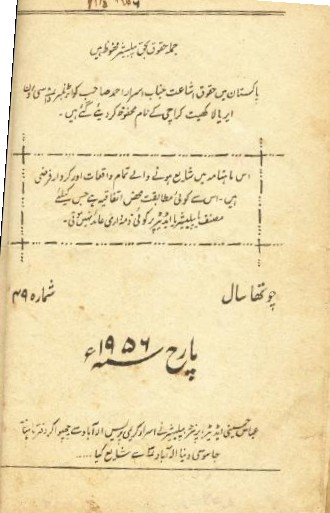 جملہ حقوق بحق پبلیشر محفوظ ہیں
پاکستان میں حقوق اشاعت جناب اسرار احمد صاحب کوارٹر نمبر
ایریا لالو کھیت کراچی کے نام محفوظ کر دیئے گئے ہیں۔
اس ماہنامہ میں شایع ہونے والے تمام واقعات اور کردار فرضی
ہیں۔ اس سے کوئی مطابقت محض اتفاقیہ ہے جس کیلئے
مصنف یا پبلیشر یا ایڈیٹر پر کوئی ذمہ داری عائد نہیں ہوتی۔
چوتھا سال
شمارہ ۴۹
مارچ سنہ ۱۹۵۶ء
عباس حسینی ایڈیٹر پرنٹر پبلیشر نے اسرار کریمی پریس الہ آباد سے چھپوا کر دفتر ماہنامہ
جاسوسی دنیا الہ آباد سے شایع کیا.....